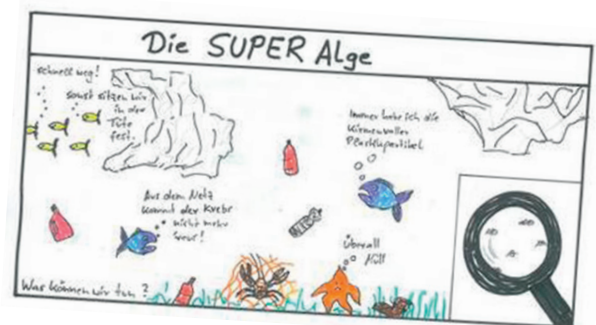 Die SUPER Alge
schnell weg!
sonst sitzen wir
in der
Tüte
fest.
Immer habe ich die
Kiemen voller
Plastikpartikel
Aus dem Netz
kommt der Krebs
nicht mehr
raus!
Überall
Müll
Was können wir tun?